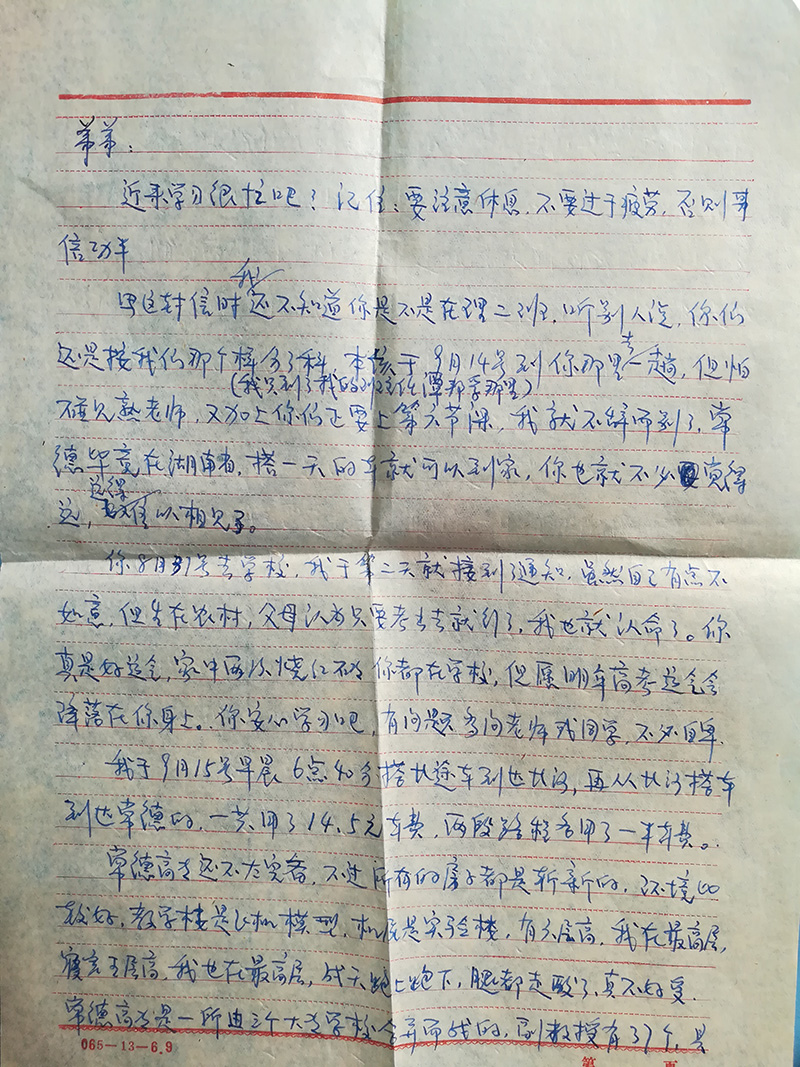 弟弟:
近来学习很忙吧?记住:要注意休息,不要过于疲劳,否则事
倍功半
我
写这封信时还不知道你是不是在理二班,听别人说,你们
去
还是按我们那个样分了科,本该于9月14号到你那里一趟,但怕
(我只到了我的班主任谭那里)
碰见熟老师,又加上你们还要上第六节课,我就不辞而别了,常
德毕竟在湖南省,搭一天的车就可以到家,你也就不必觉得
远得
远,难以相见了。
你8月31号去学校,我于第二天就接到了通知,虽然自己有点不
如意,但生在农村,父母认为只要考出去就行了,我也就认命了。你
真是好运气,家中两次烧红砖你都在学校,但愿明年高考运气会
降落在你身上。你安心学习吧,有问题多问老师或同学,不必自卑
我于9月15号早晨6点40分搭长途车到达长沙,再从长沙搭车
到达常德的,一共用了14.5元车费,两段路程各用了一半车费。
常德高专还不太完备,不过所有的房子都是新新的,环境比
较好,教学楼是飞机模型,机尾是实验楼,有六层高,我在最高层,
寝室五层高,我也在最高层,成天跑上跑下,腿都走酸了,真不好受.
常德高专是一所由三个大专学校合并而成的,副教授有37个,是
065—13—6.9
第 页